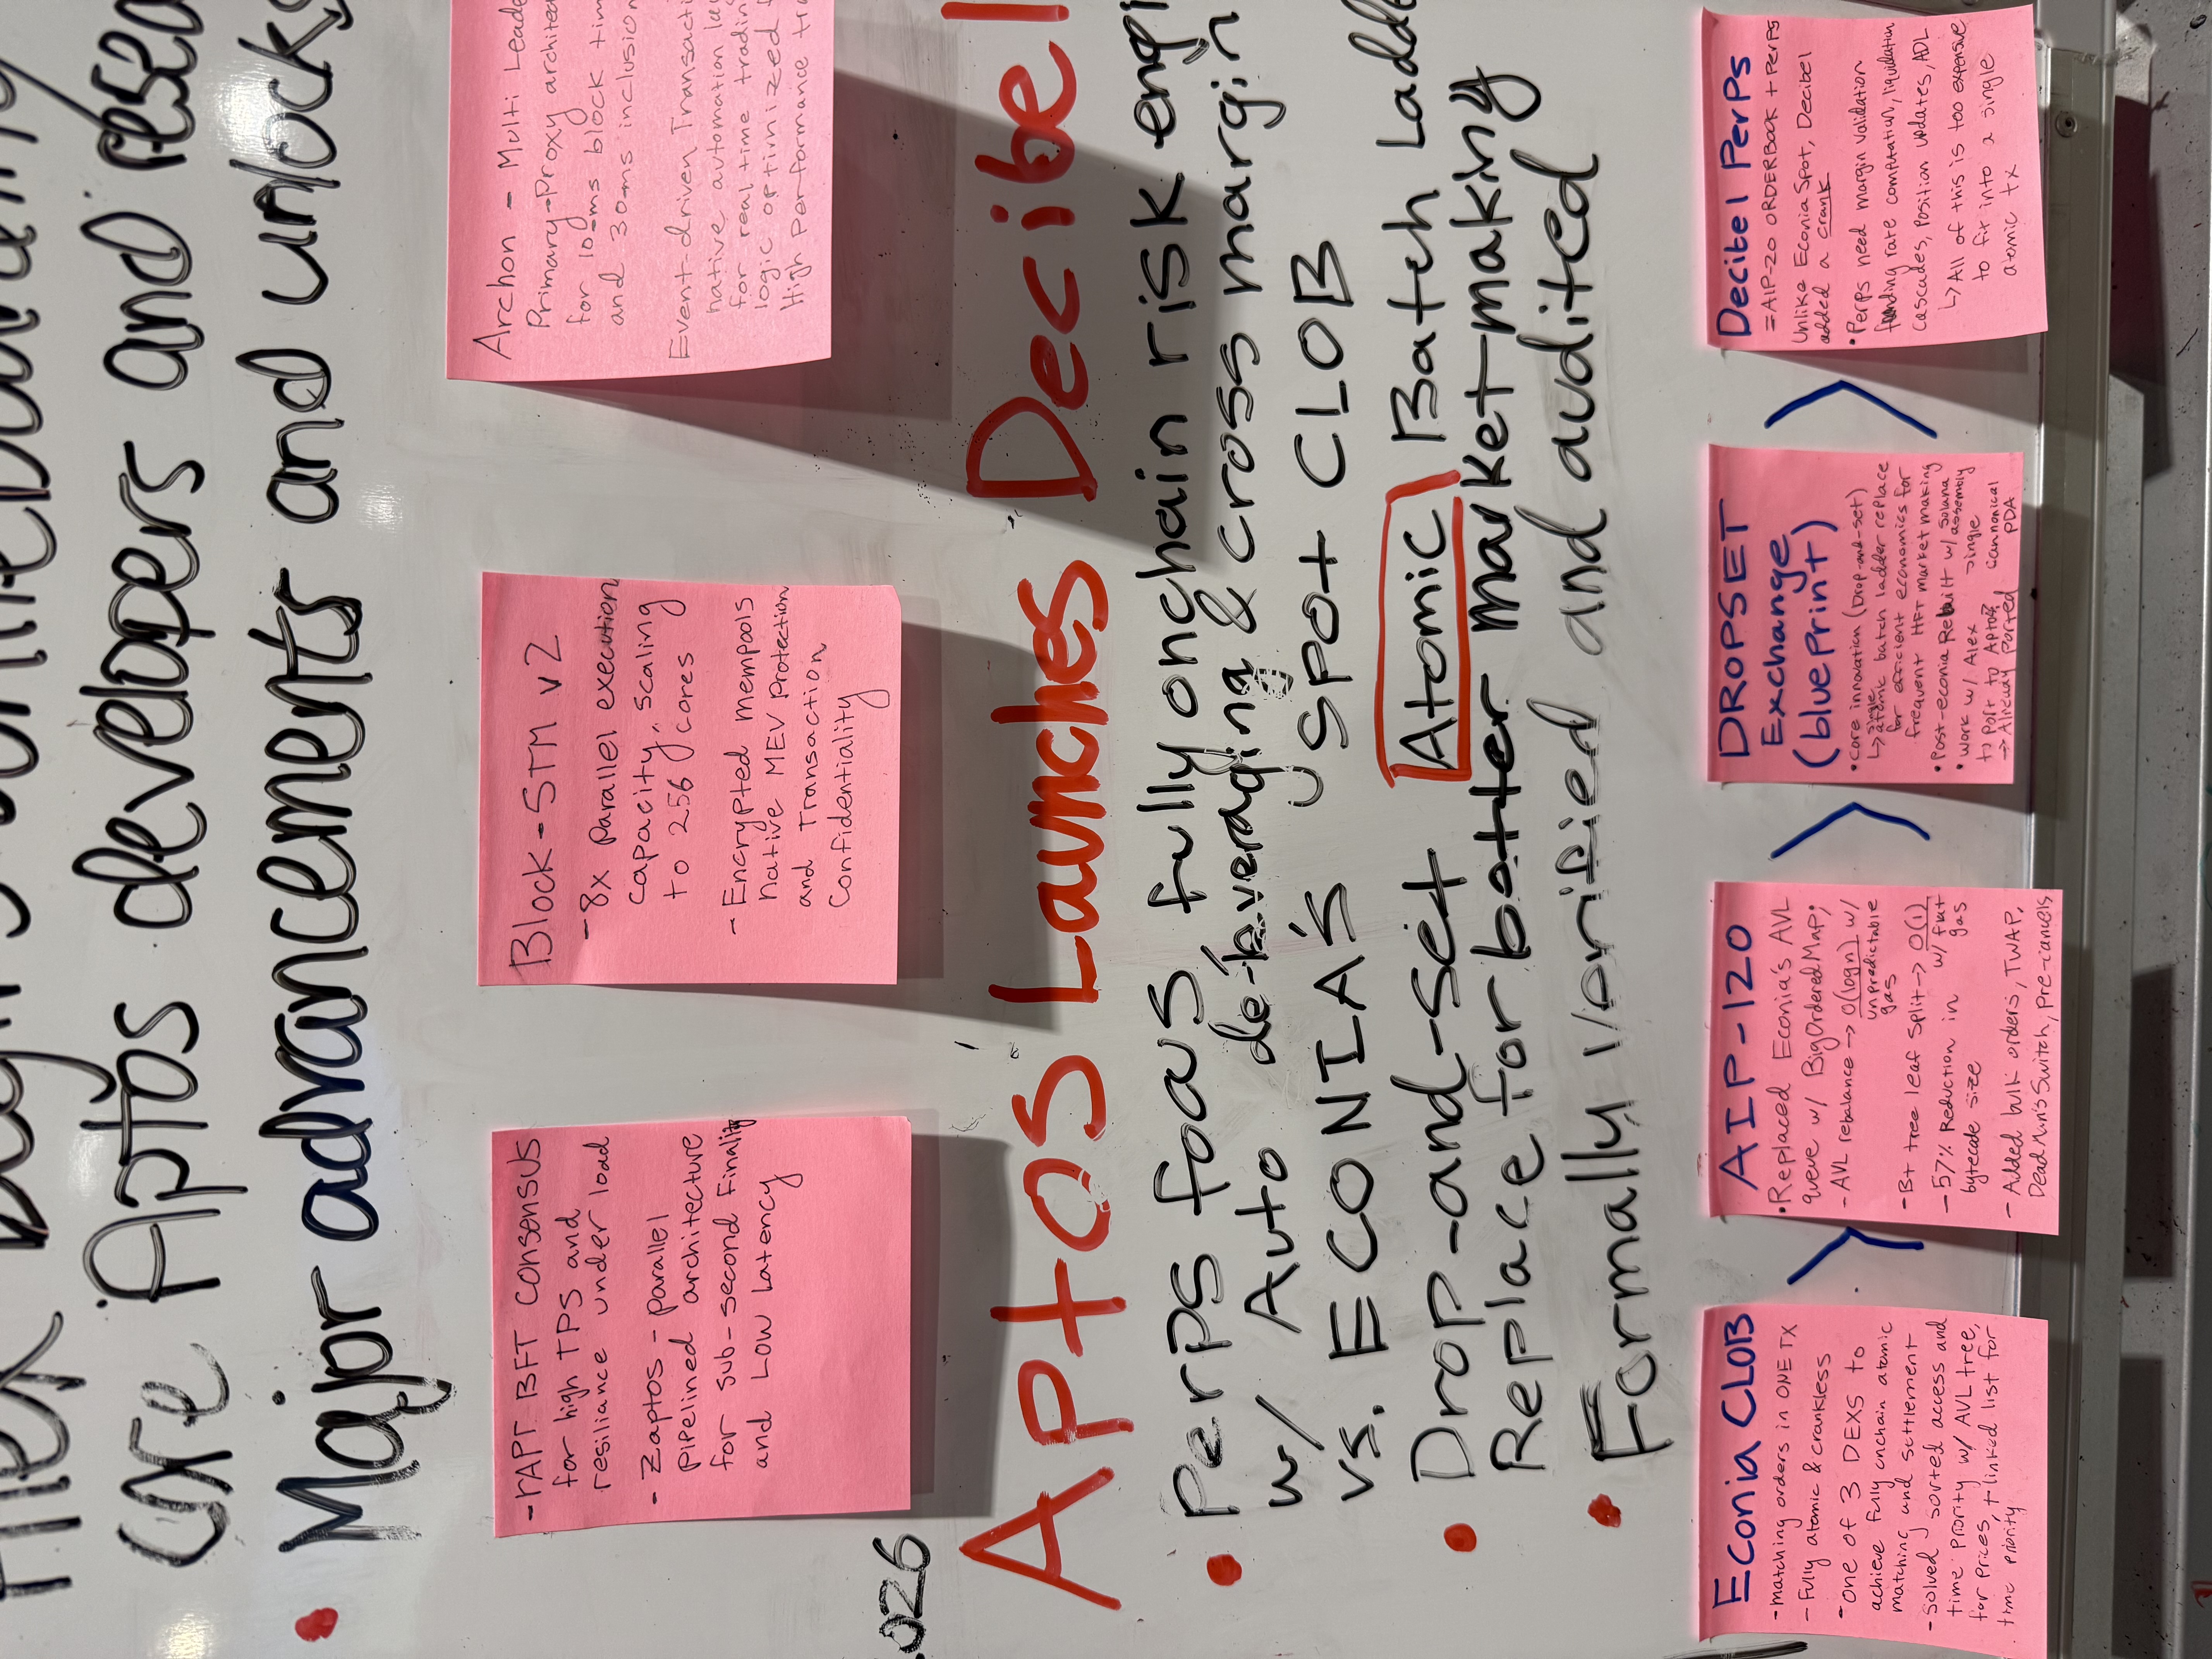 core Aptos developers and
• Major advancements and unlocks
-rAPT BFT consensus
for high TPS and
resiliance under load
- Zaptos - parallel
pipelined architecture
for sub-second Finality
and Low Latency
Block-STM v2
-8x parallel execution
capacity, scaling
to 256 cores
-Encrypted mempools
native MEV protection
and transaction
confidentiality
Archon - Multi
Primary-Proxy
for 10-ms block
and 30ms inclusion
Event-driven
native automation
for real time trading
logic optimized
High performance
Aptos Launches Decibel
• Perps focus fully onchain risk
w/ Auto de-leveraging & cross margin
vs. ECONIA's spot CLOB
• Drop-and-set Atomic Batch
Replace for better market-making
• Formally Verified and audited
Econia CLOB
-matching orders in ONE TX
-Fully atomic & crankless
-one of 3 DEXs to
achieve fully onchain atomic
matching and settlement
-solved sorted access and
time priority w/ AVL tree,
for prices, + linked list for
time priority
AIP-120
• Replaced Econia's AVL
queue w/ BigOrderedMap;
- AVL rebalance -> O(logn) w/
unpredictable
gas
-B+ tree leaf split -> O(1)
w/ flat
gas
-57% Reduction in
bytecode size
- Added bulk orders, TWAP,
Dead Mn's Switch, pre-cancels
DROPSET
Exchange
(blueprint)
• core innovation (Drop-and-set)
↳ single atomic batch ladder replace
for efficient economics for
frequent HFT market making
• Post-econia Rebuilt w/ solana
w/ assembly
• Work w/ Alex -> single
to Port to Aptos cannonical
-> Already ported PDA
Decibel Perps
=AIP-20 ORDERBOOK + PERPS
Unlike Econia Spot, Decibel
added a crank
• Perps need margin validation
funding rate computation, liquidation
cascades, position updates, ADL
↳ All of this is too expensive
to fit into a single
atomic tx